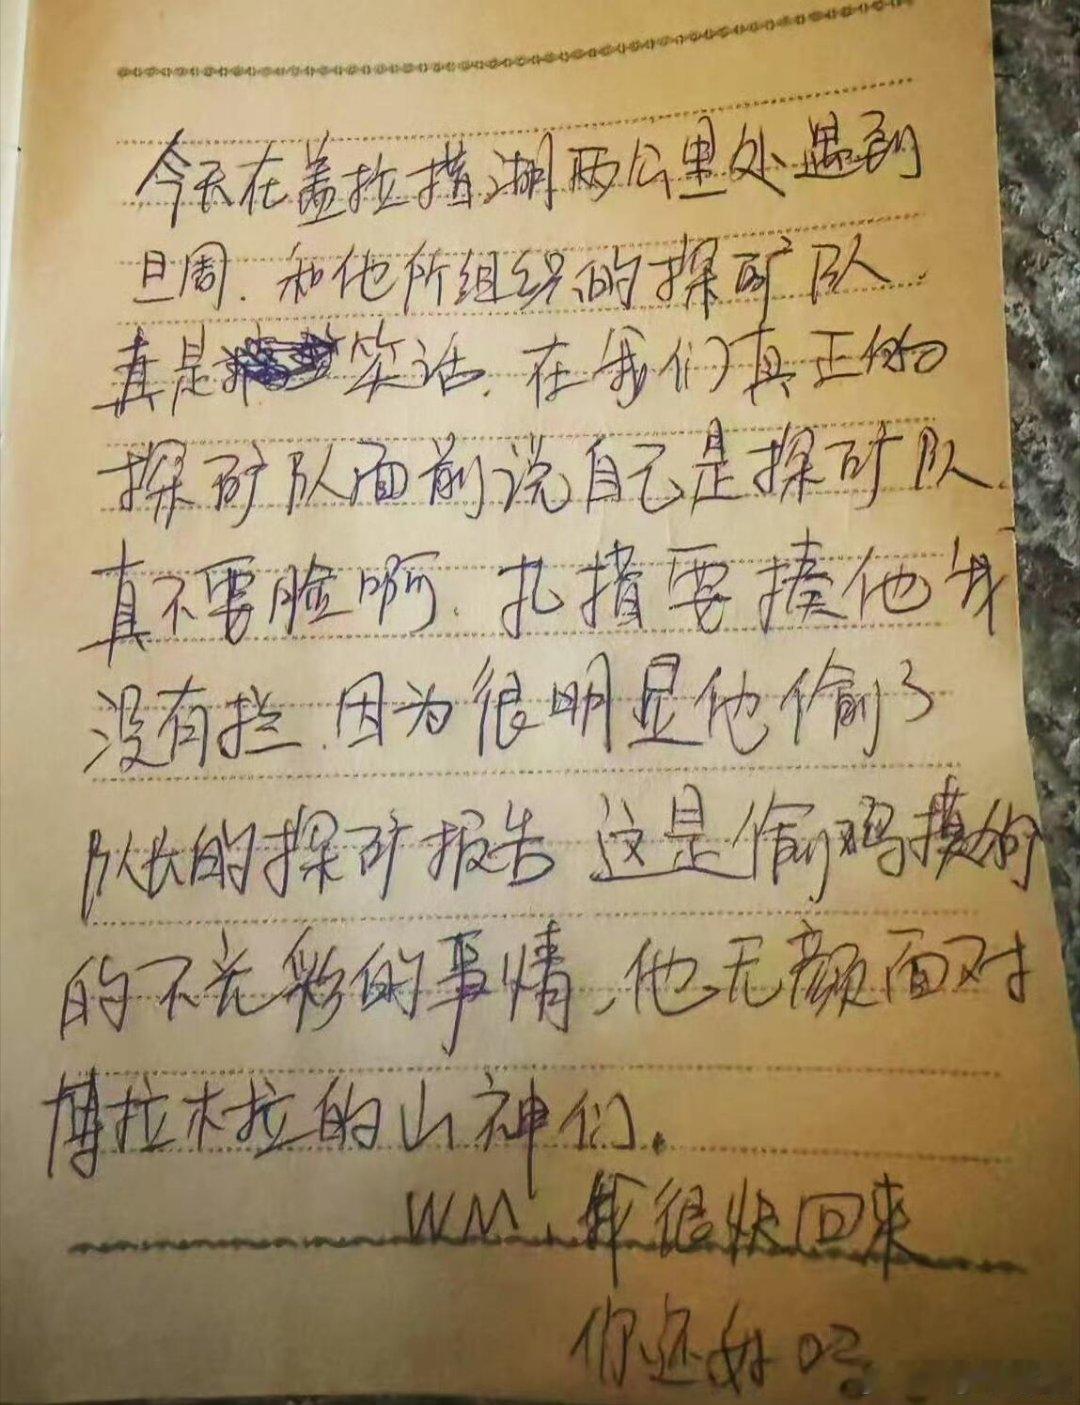 今天在盖拉措湖两公里处遇到
旦周.和他所组织的探矿队.
真是笑话.在我们真正的
探矿队面前说自己是探矿队.
真不要脸啊.扎措要揍他我
没有拦.因为很明显他偷了
队长的探矿报告 这是偷鸡摸狗
的不光彩的事情,他无颜面对
博拉木拉的山神们.
WM、我很快回来
你还好吗